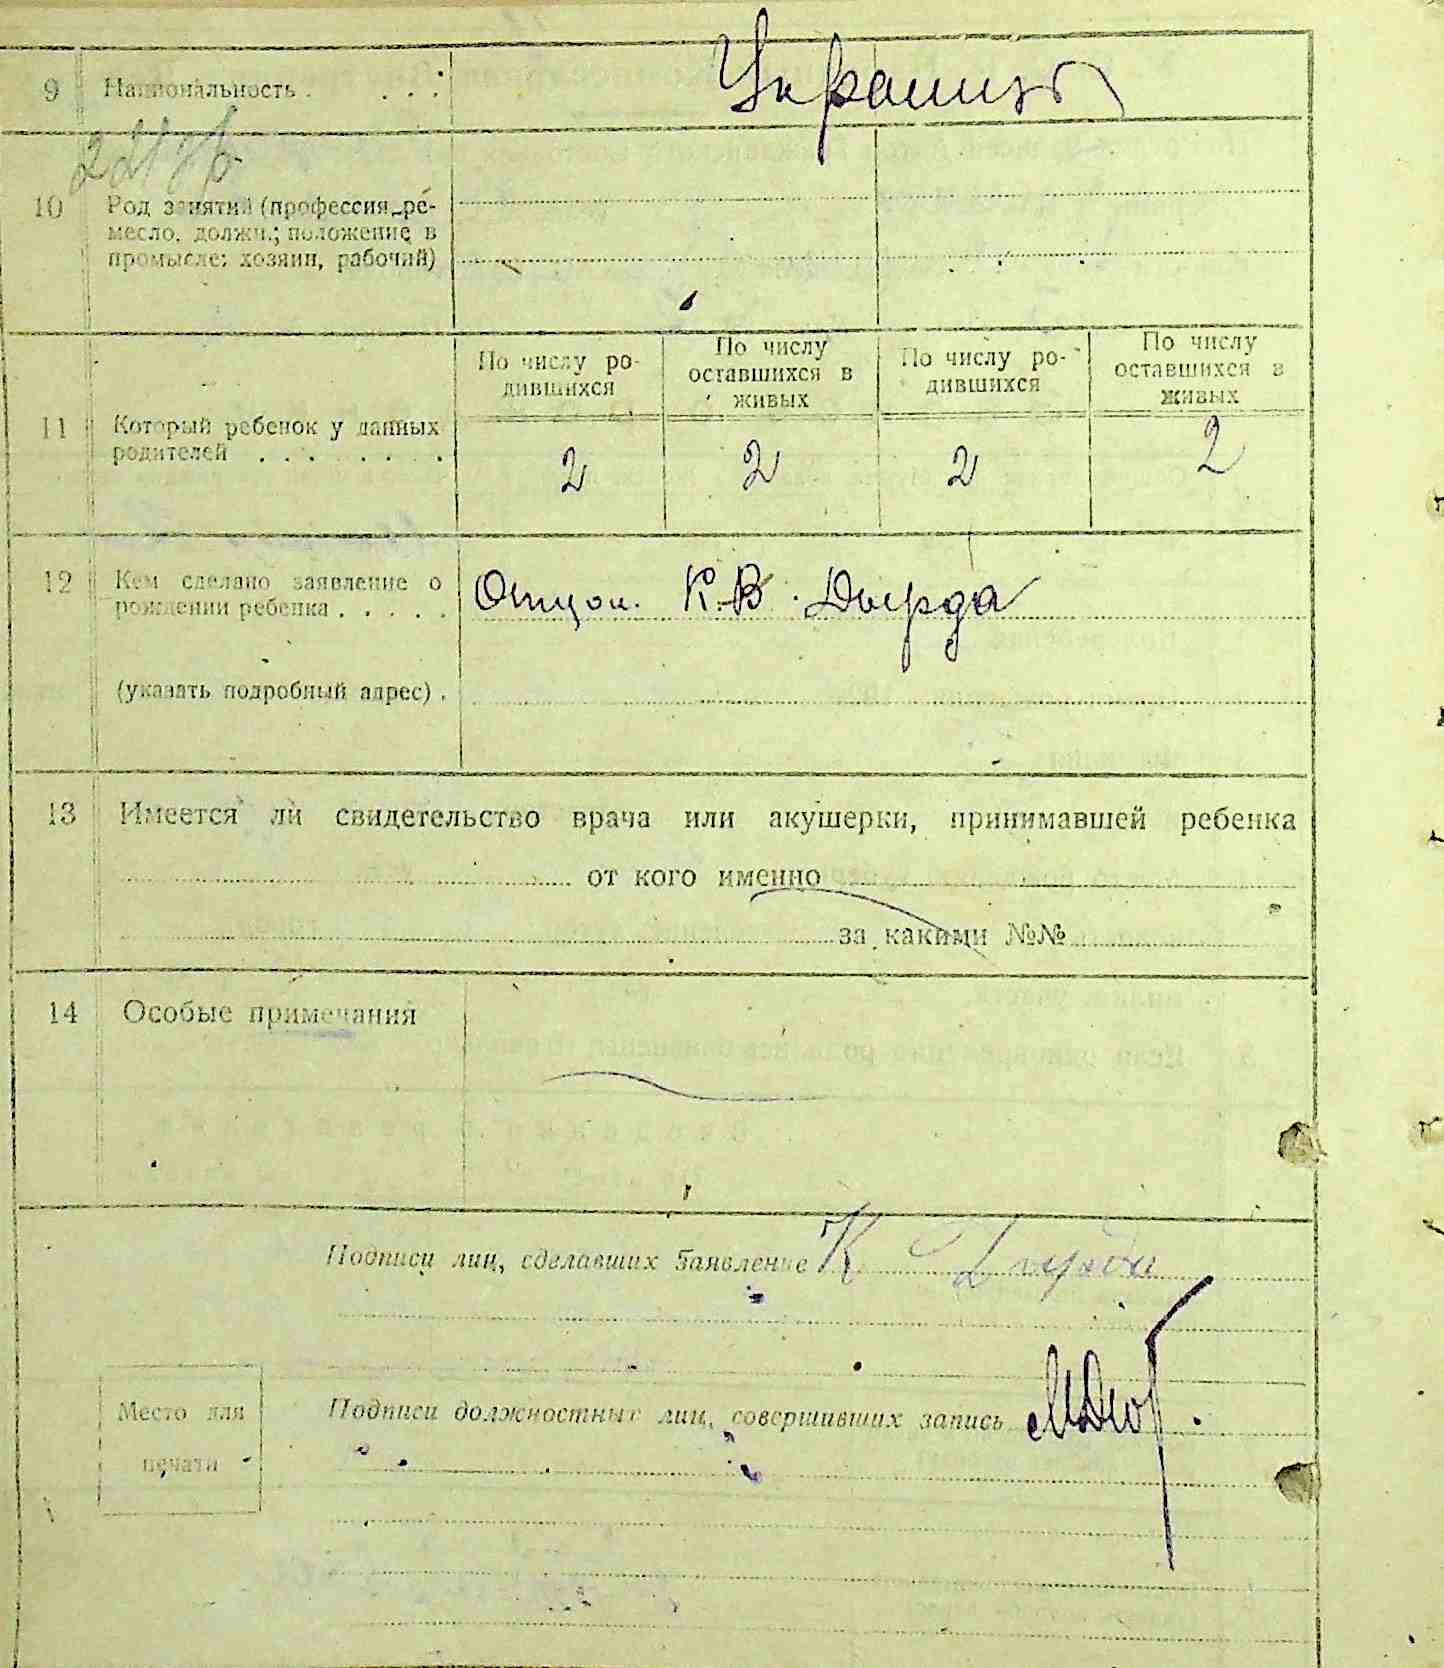 9 Национальность . . . . Украинцы
10 Род занятий (профессия, ре-
месло, должн.; положение в
промысле: хозяин, рабочий)
По числу ро-
дившихся
По числу
оставшихся в
живых
По числу ро-
дившихся
По числу
оставшихся в
живых
11 Который ребенок у данных
родителей . . . . . . . 2 2 2 2
12 Кем сделано заявление о
рождении ребенка . . . . . Отцом. К. В. Дырда
(указать подробный адрес) .
13 Имеется ли свидетельство врача или акушерки, принимавшей ребенка
от кого именно
за какими №№
14 Особые примечания
Подписи лиц, сделавших заявление К Дырда
Место для
печати
Подписи должностных лиц, совершивших запись